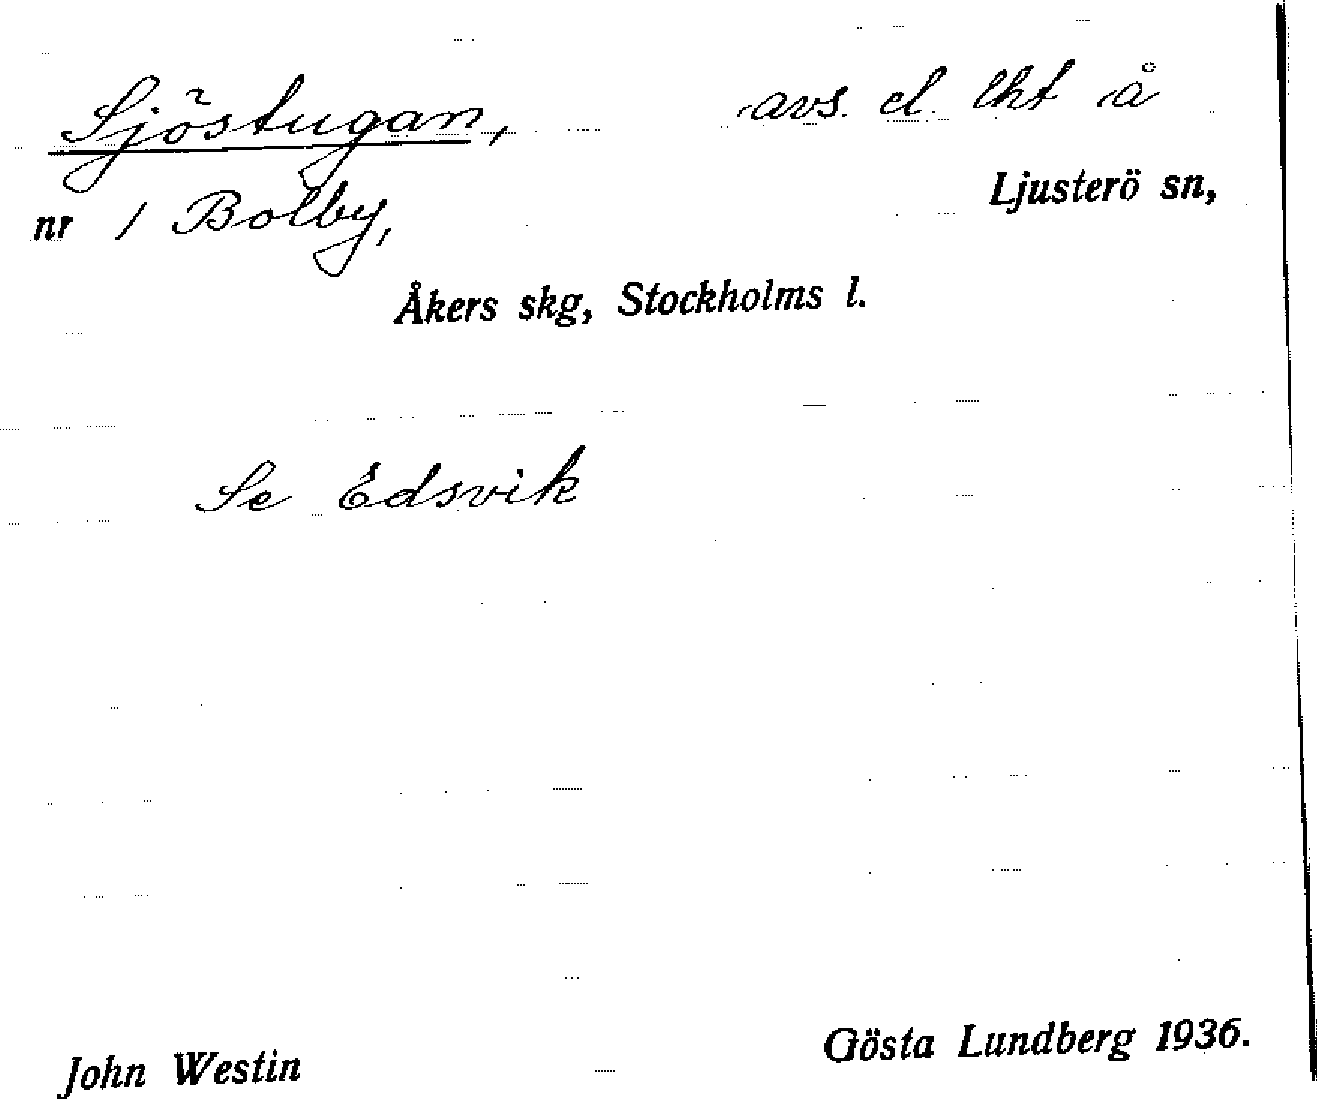 Sjöstugan, avs. el. lht å
Ljusterö sn,
nr 1 Bolby,
Åkers skg, Stockholms l.
Se Edsvik
John Westin Gösta Lundberg 1936.